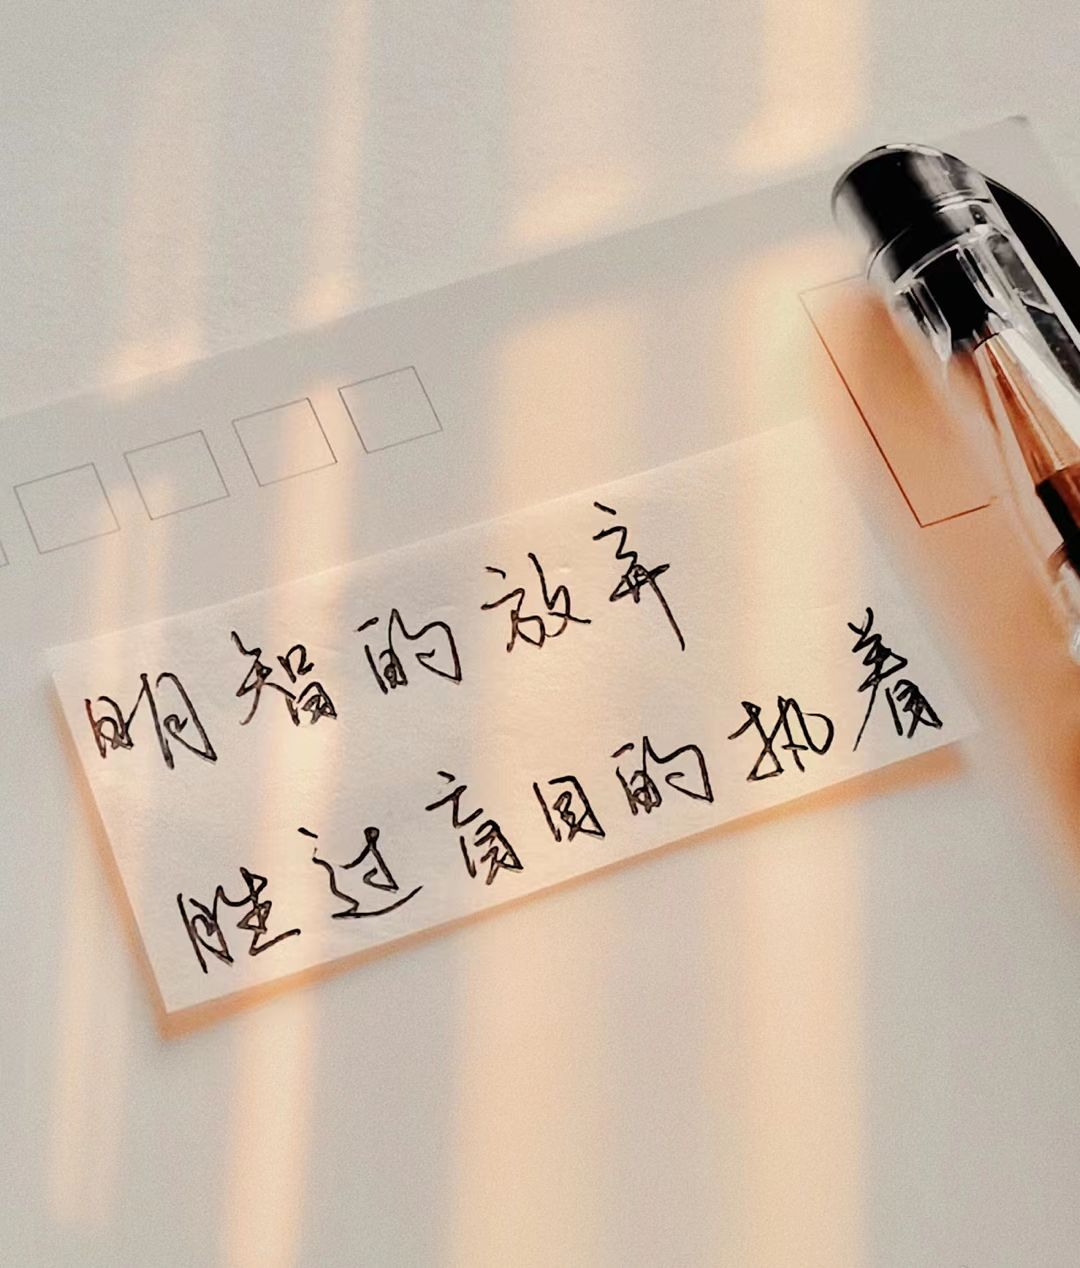 明智的放弃
胜过盲目的执着